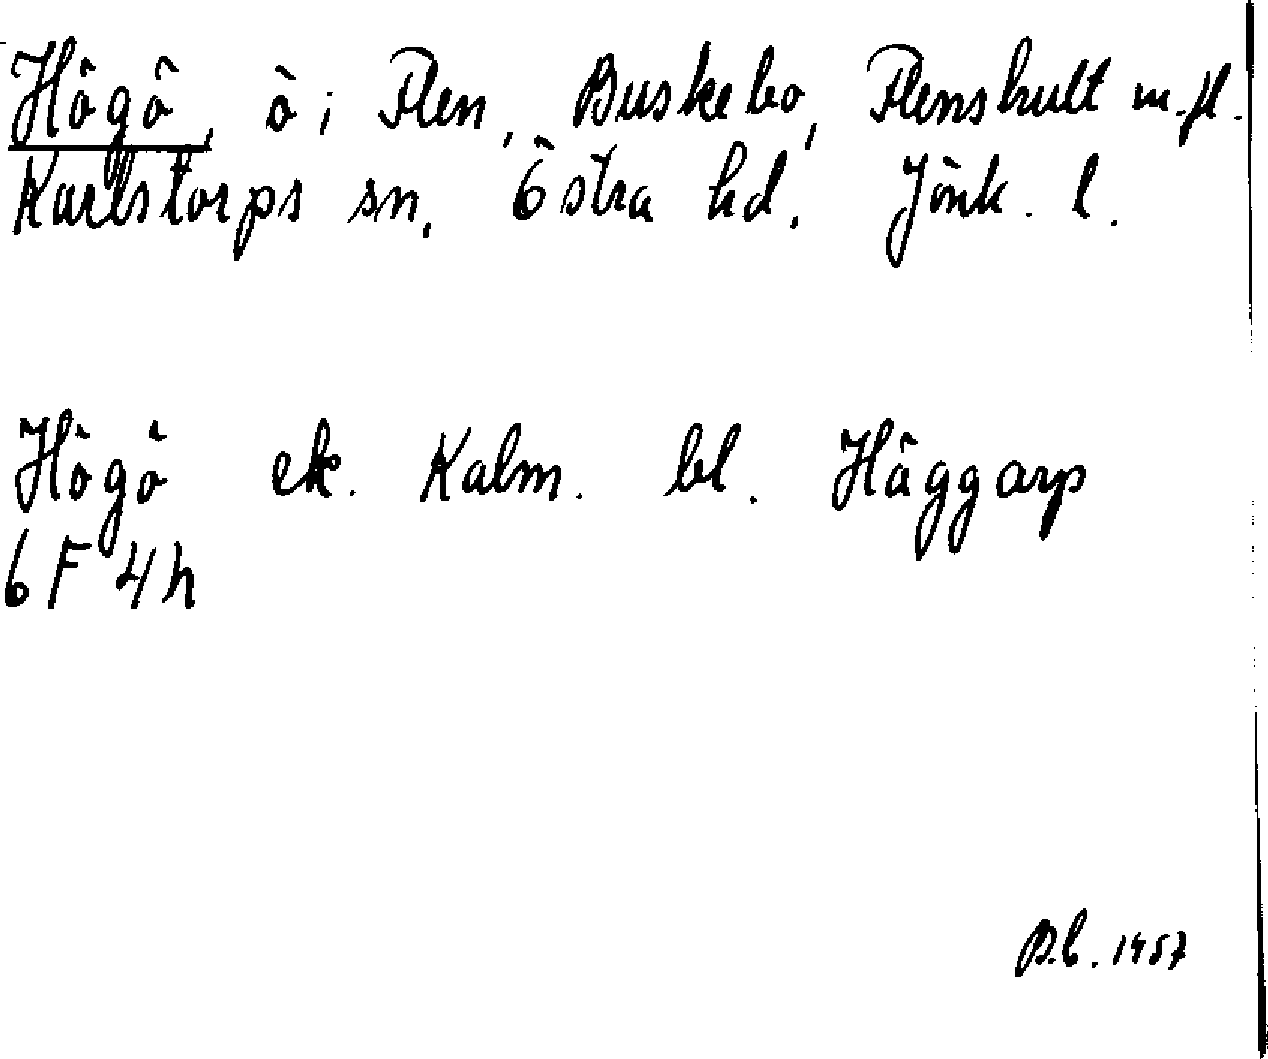 Högö, ö i Flen, Buskebo, Flenshult m.fl.
Karlstorps sn, Östra hd. Jönk. l.
Högö ek. Kalm. bl. Häggarp
6F 4h
B.L. 1957